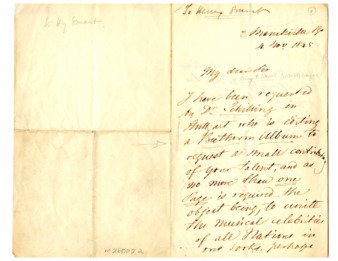 To Henry
To Henry
2 Manchester
4 Nov. 1845.
My dear Sir
I have been requested
by Dr. Schilling in
Stuttgart who is editing
a Beethoven Album to
request a small
of your talent, and as
no more than one
Page is required the
object being, to unite
the musical celebrities
of all Nations in
one book, perhaps